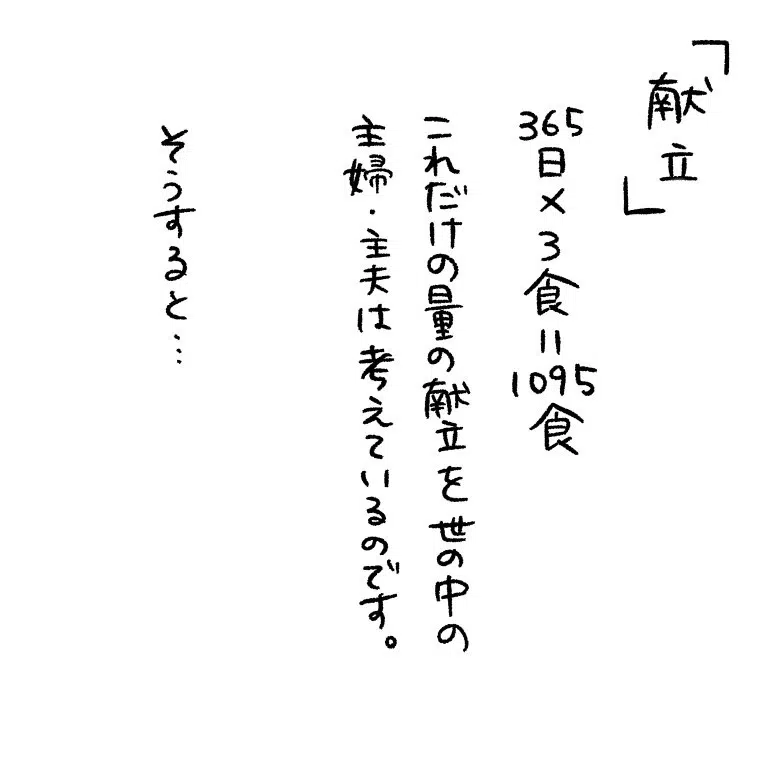 「献立」
365日×3食=1095食
これだけの量の献立を世の中の
主婦・主夫は考えているのです。
そうすると…